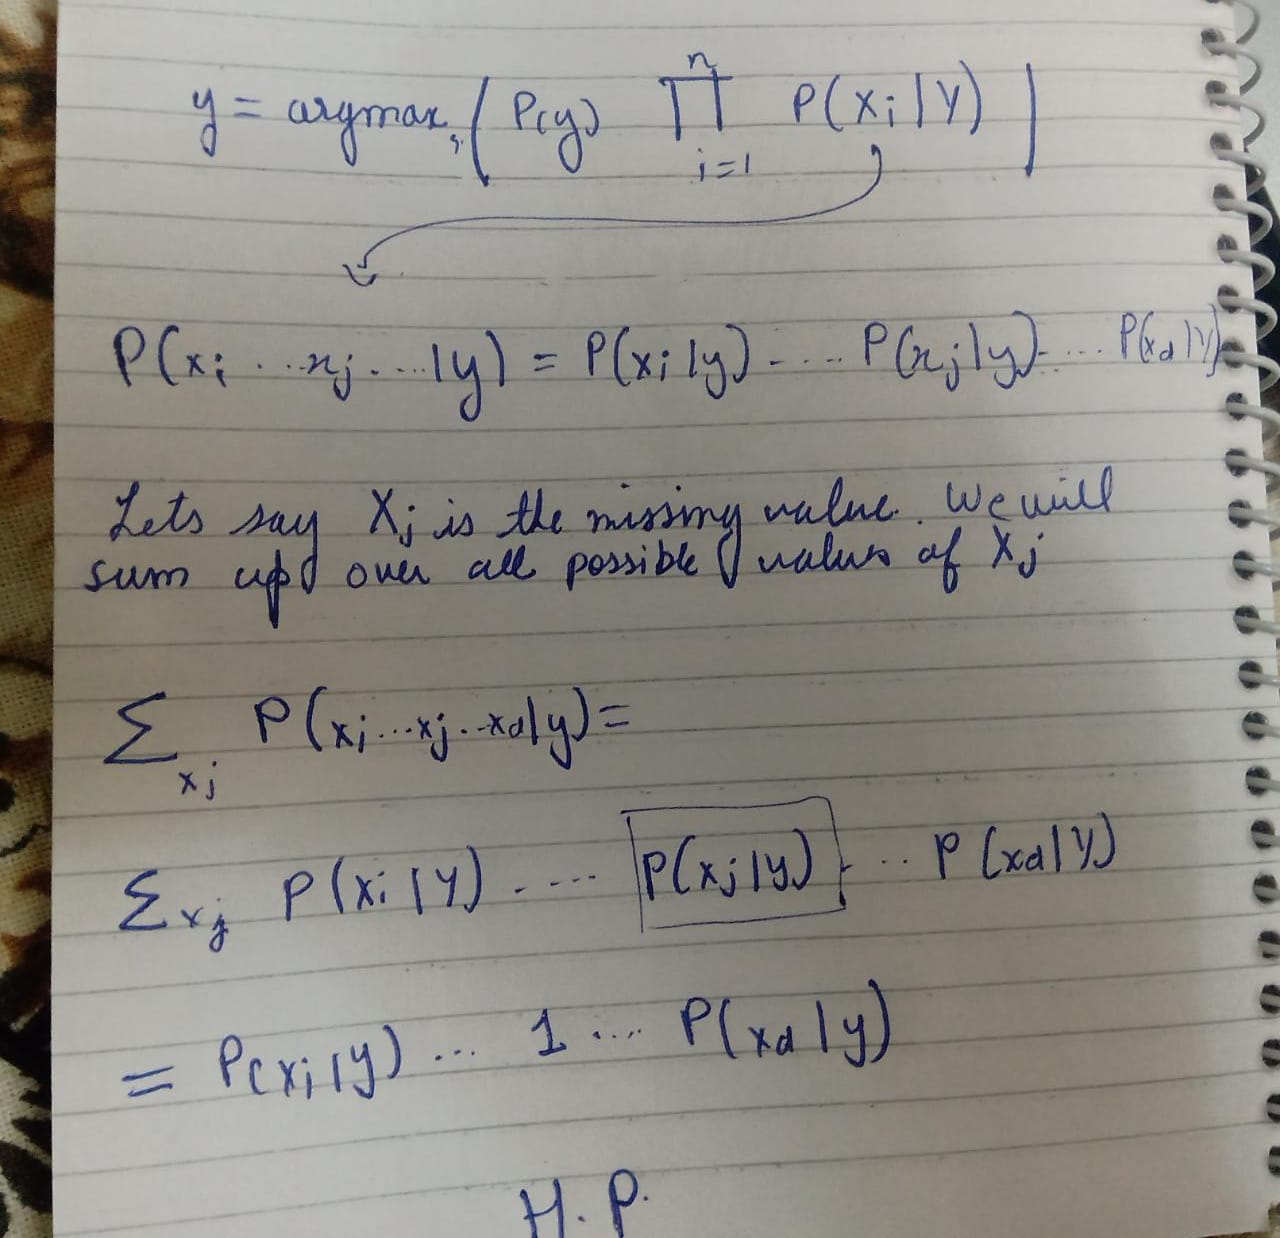 y = argmax, ( P(y) ∏ⁿᵢ₌₁ P(xᵢ|Y) |
P(xᵢ ... xⱼ ... |y) = P(xᵢ|y) ..... P(xⱼ|y) .... P(x_d|Y)
Lets say Xⱼ is the missing value. We will
sum up over all possible values of Xⱼ
∑_xⱼ P(xᵢ...xⱼ..x_d|y) =
∑_xⱼ P(xᵢ|Y) ..... P(xⱼ|y) ... P(x_d|Y)
= P(xᵢ|y) ... 1 .... P(x_d|y)
H.P.